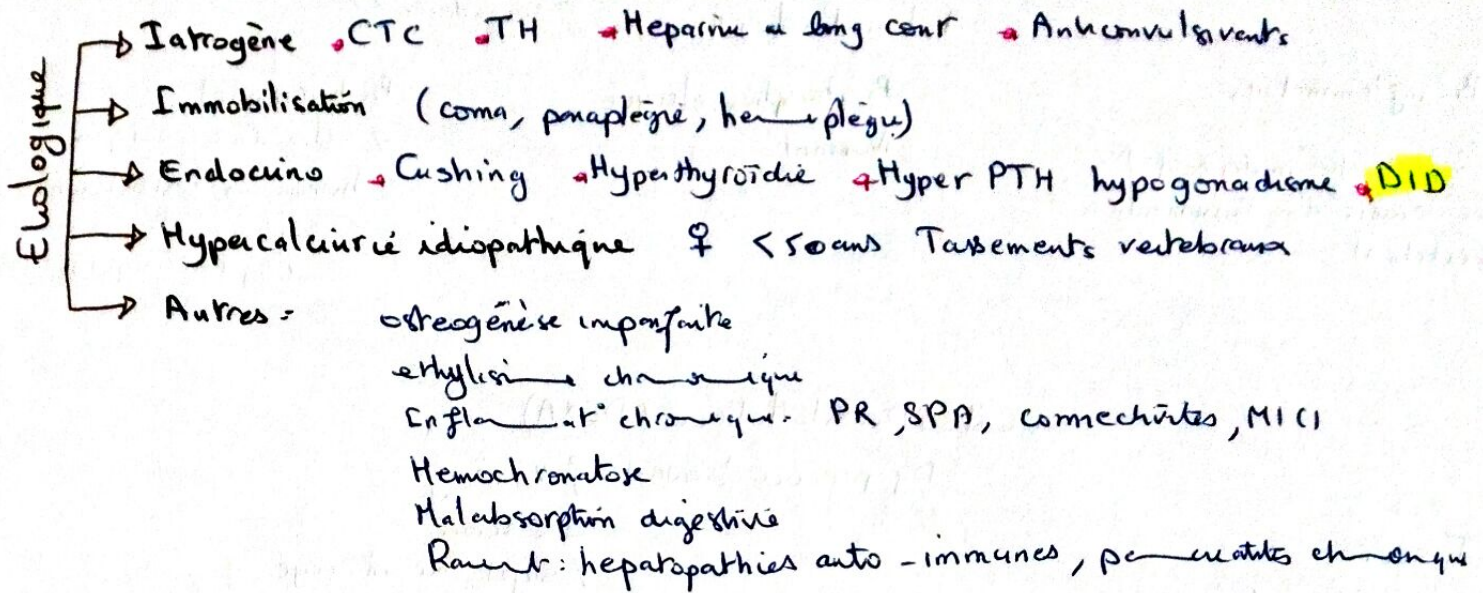 Etiologique
→ Iatrogène • CTC • TH • Heparine a long cour • Anticonvulsivants
→ Immobilisation (coma, paraplégie, hemiplégie)
→ Endocrino • Cushing • Hyperthyroïdie • Hyper PTH hypogonadisme • DID
→ Hypercalciurie idiopathique ♀ <50ans Tassements vertebraux
→ Autres :
osteogénèse imparfaite
ethylisme chronique
Inflammat° chronique. PR, SPA, connectivites, MICI
Hemochromatose
Malabsorption digestive
Rarement : hepatopathies auto-immunes, pancreatites chronique